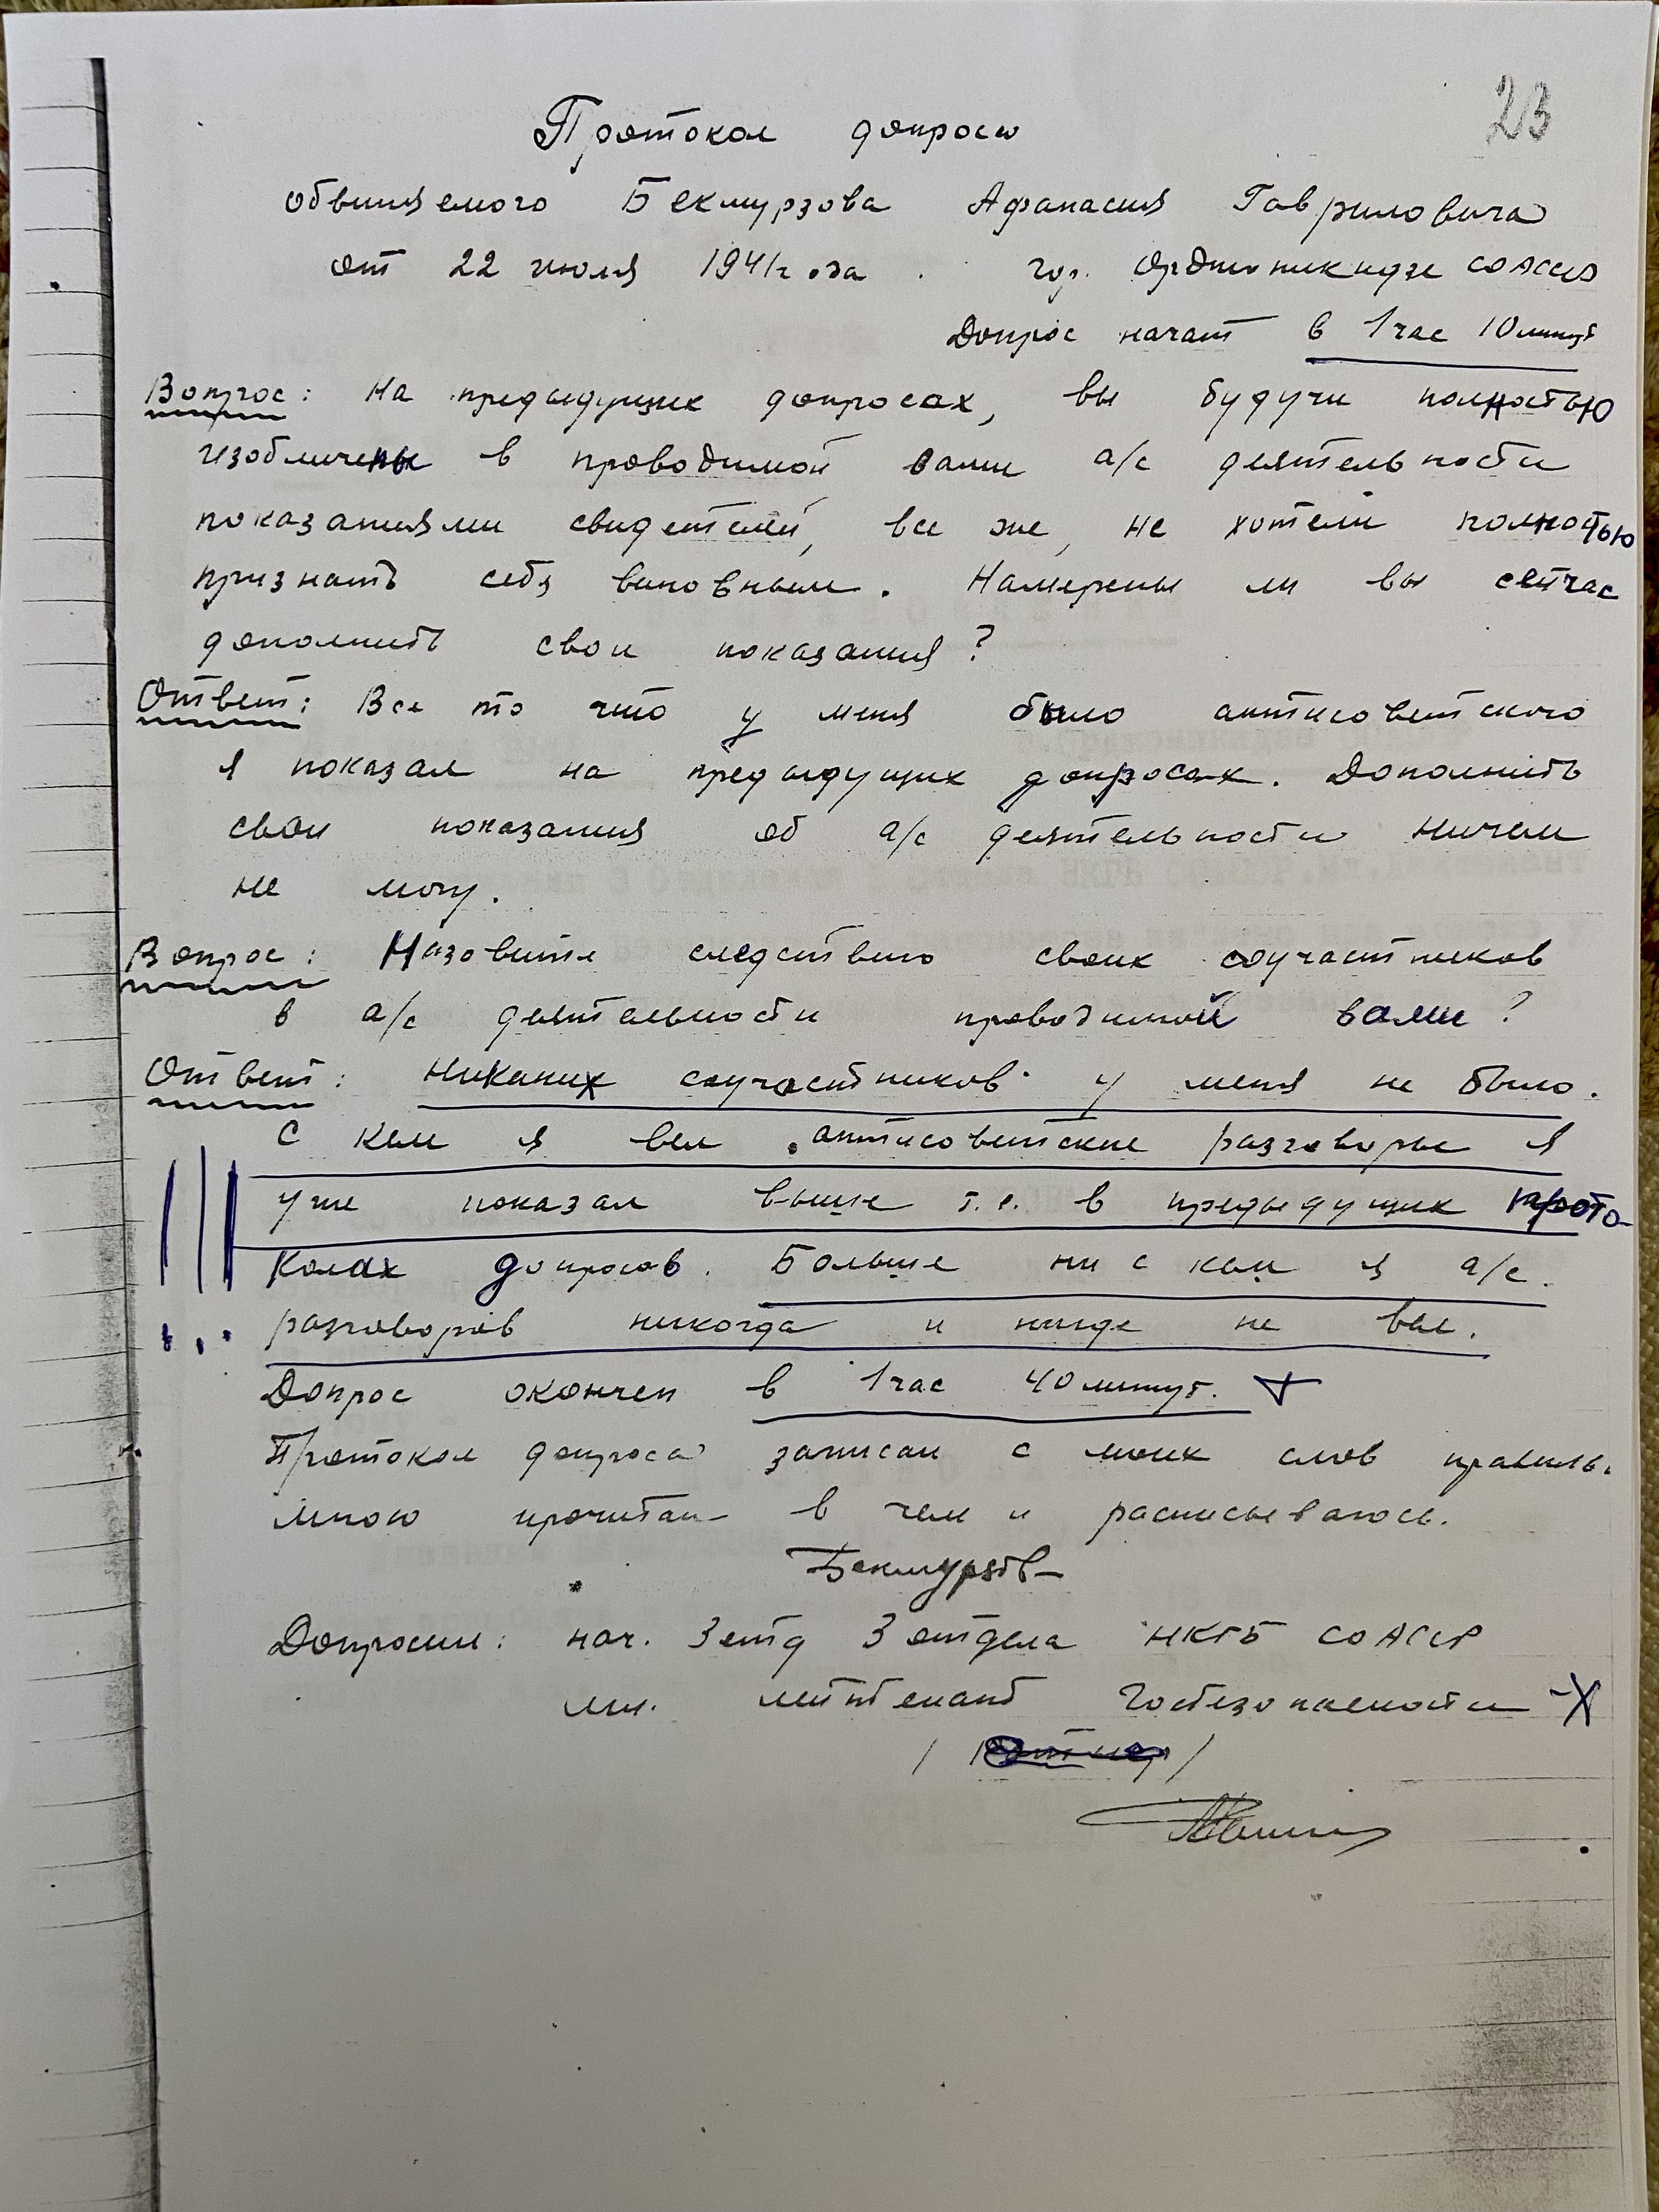 23
Протокол допроса
обвиняемого Бекмурзова Афанасия Гавриловича
от 22 июля 1941 года. гор. Орджоникидзе СОАССР
Допрос начат в 1 час 10 минут
Вопрос: На предыдущих допросах, вы будучи полностью
изобличены в проводимой вами а/с деятельности
показаниями свидетелей, все же, не хотели полностью
признать себя виновным. Намерены ли вы сейчас
дополнить свои показания?
Ответ: Все то что у меня было антисоветского
я показал на предыдущих допросах. Дополнить
свои показания об а/с деятельности ничем
не могу.
Вопрос: Назовите следствию своих соучастников
в а/с деятельности проводимой вами?
Ответ: Никаких соучастников у меня не было.
С кем я вел антисоветские разговоры я
уже показал выше т.е. в предыдущих прото-
колах допросов. Больше ни с кем я а/с.
разговоров никогда и нигде не вел.
Допрос окончен в 1 час 40 минут.
Протокол допроса записан с моих слов правиль.
мною прочитан в чем и расписываюсь.
Бекмурзов
Допросил: нач. 3 отд 3 отдела НКГБ СОАССР
мл. лейтенант Госбезопасности